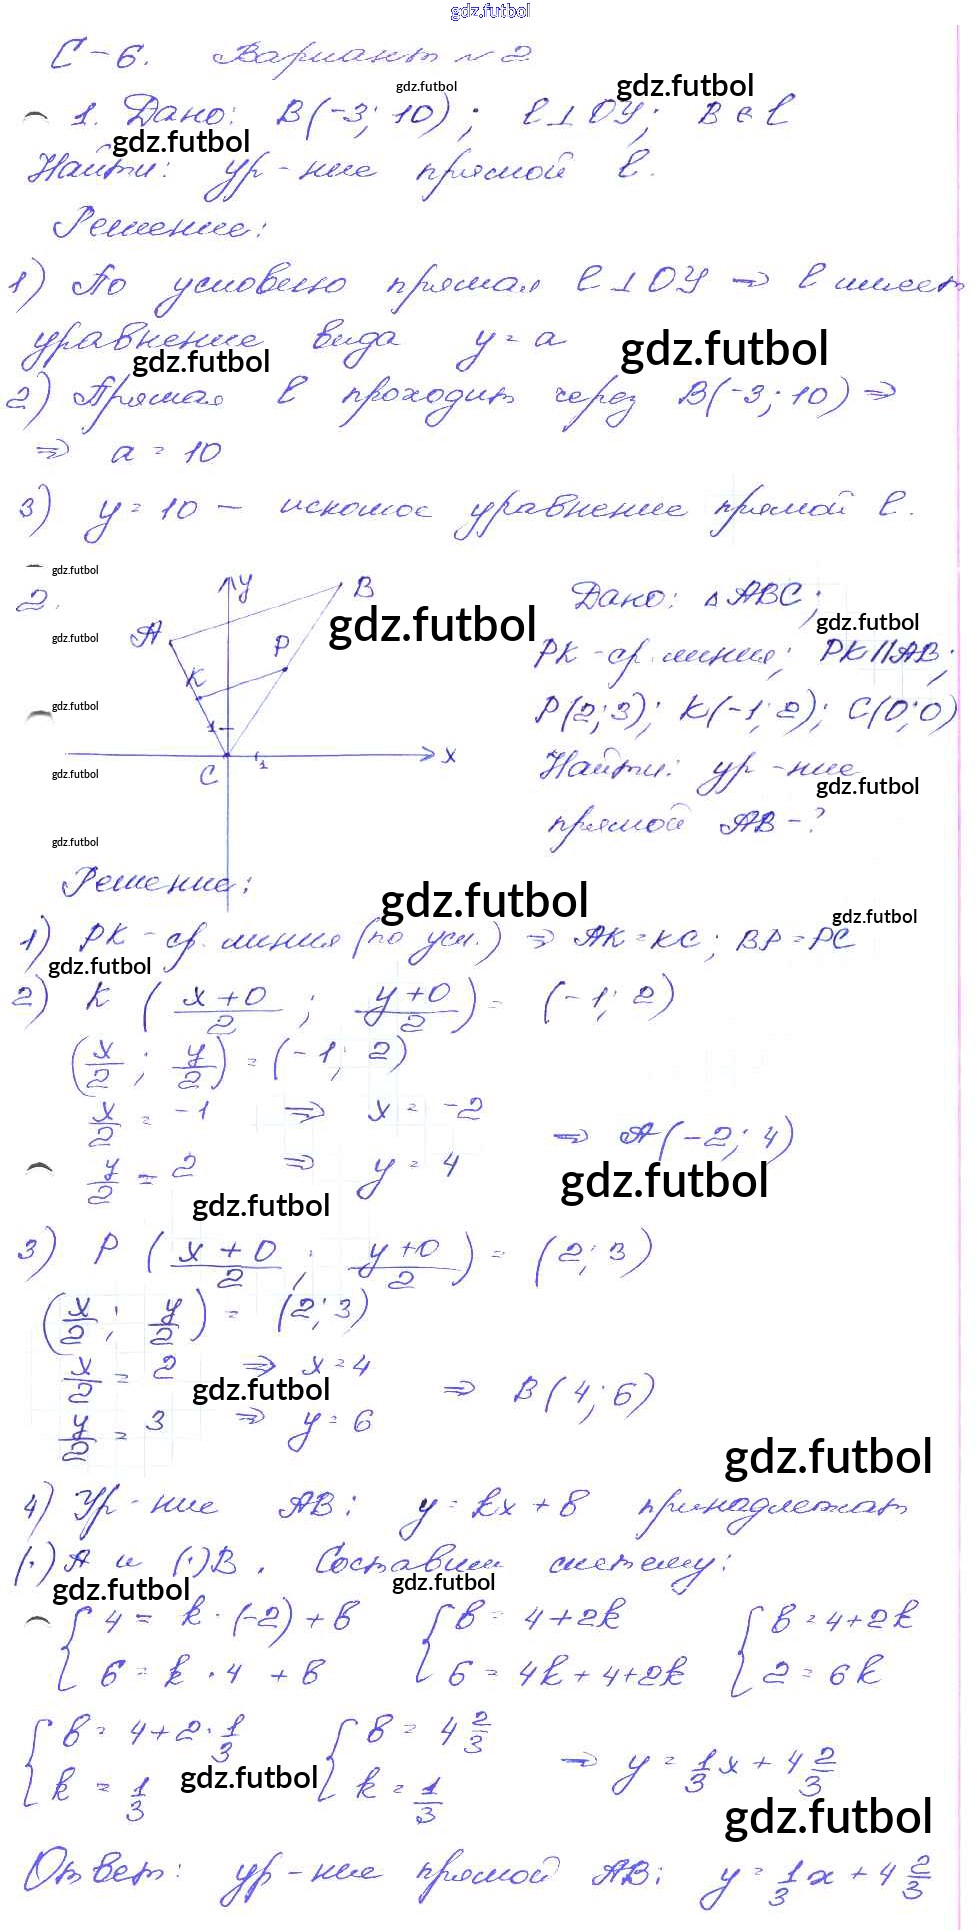 gdz.futbol
С-6. Вариант №2
gdz.futbol gdz.futbol
1. Дано: B(-3; 10); l⊥OY; B∈l
gdz.futbol
Найти: ур-ние прямой l.
Решение:
1) По условию прямая l⊥OY ⇒ l имеет
уравнение вида y=a
gdz.futbol gdz.futbol
2) Прямая l проходит через B(-3; 10) ⇒
⇒ a = 10
3) y = 10 – искомое уравнение прямой l.
gdz.futbol
2.
y
B
A
P
K
1
1
C
x
gdz.futbol
gdz.futbol
gdz.futbol
gdz.futbol
gdz.futbol
Дано: △ABC;
gdz.futbol
PK-ср. линия; PK||AB;
P(2; 3); K(-1; 2); C(0; 0)
Найти: ур-ние
gdz.futbol
прямой AB-?
Решение:
gdz.futbol
gdz.futbol
1) PK-ср. линия (по усл.) ⇒ AK=KC; BP=PC
gdz.futbol
2) K ( (x+0)/2 ; (y+0)/2 ) = (-1; 2)
(x/2 ; y/2) = (-1; 2)
x/2 = -1 ⇒ x = -2
⇒ A(-2; 4)
y/2 = 2 ⇒ y = 4
gdz.futbol
gdz.futbol
3) P ( (x+0)/2 ; (y+0)/2 ) = (2; 3)
(x/2 ; y/2) = (2; 3)
x/2 = 2 ⇒ x = 4
gdz.futbol
⇒ B(4; 6)
y/2 = 3 ⇒ y = 6
gdz.futbol
4) Ур-ние AB: y = kx + b принадлежат
(·)A и (·)B. Составим систему:
gdz.futbol gdz.futbol
{ 4 = k·(-2)+b { b = 4+2k { b = 4+2k
6 = k·4 + b 6 = 4k+4+2k 2 = 6k
{ b = 4+2·1/3 { b = 4 2/3
k = 1/3 k = 1/3 ⇒ y = 1/3x + 4 2/3
gdz.futbol
gdz.futbol
Ответ: ур-ние прямой AB: y = 1/3x + 4 2/3